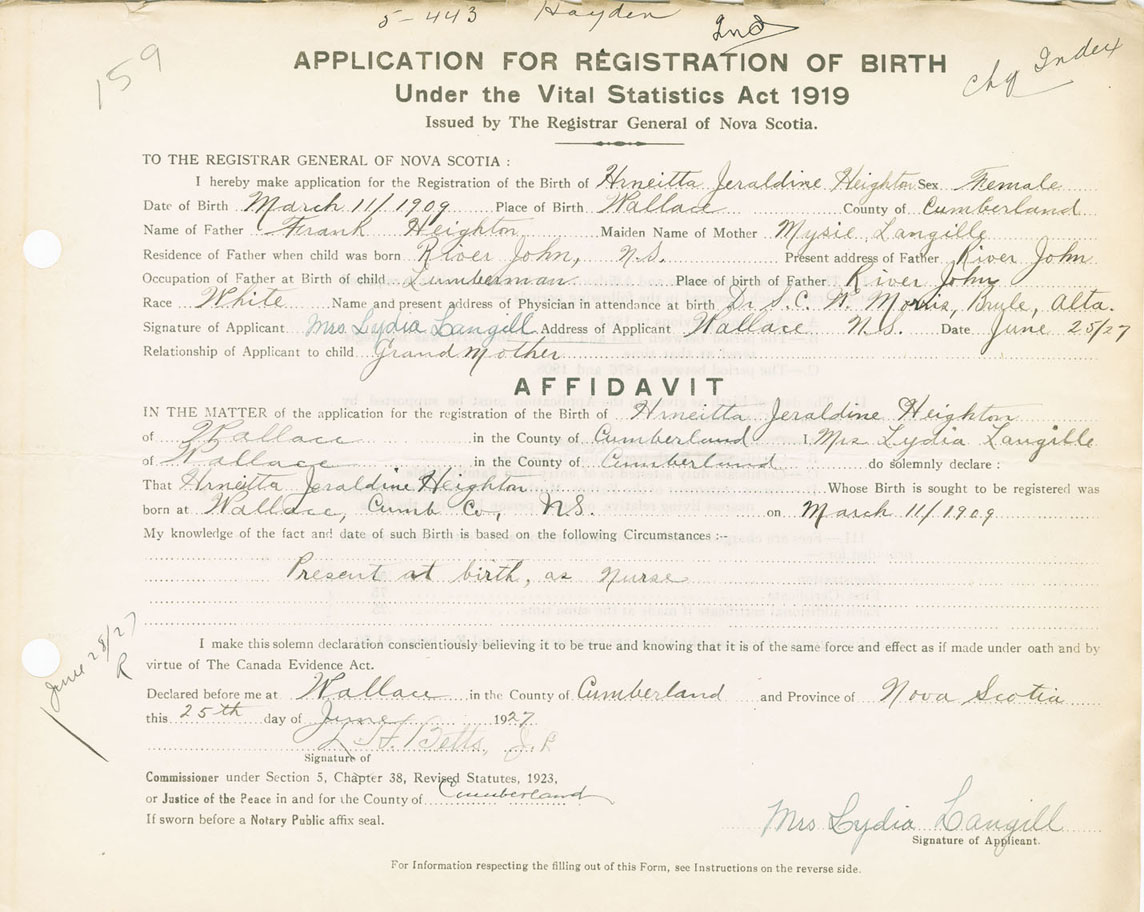 5-443 Hayden
Ind
159
Chg Index
APPLICATION FOR REGISTRATION OF BIRTH
Under the Vital Statistics Act 1919
Issued by The Registrar General of Nova Scotia.
TO THE REGISTRAR GENERAL OF NOVA SCOTIA :
I hereby make application for the Registration of the Birth of Hrneitta Jeraldine Heighton Sex Female
Date of Birth March 11/1909 Place of Birth Wallace County of Cumberland
Name of Father Frank Heighton Maiden Name of Mother Mysie Langille
Residence of Father when child was born River John, N.S. Present address of Father River John
Occupation of Father at Birth of child Lumberman Place of birth of Father River John
Race White Name and present address of Physician in attendance at birth Dr S.C. W. Morris, Brule, Alta.
Signature of Applicant Mrs Lydia Langill Address of Applicant Wallace N.S. Date June 25/27
Relationship of Applicant to child Grand Mother
AFFIDAVIT
IN THE MATTER of the application for the registration of the Birth of Hrneitta Jeraldine Heighton
of Wallace in the County of Cumberland I, Mrs Lydia Langille
of Wallace in the County of Cumberland do solemnly declare :
That Hrneitta Jeraldine Heighton Whose Birth is sought to be registered was
born at Wallace, Cumb Co, N.S. on March 11/1909
My knowledge of the fact and date of such Birth is based on the following Circumstances :--
Present at birth, as nurse
I make this solemn declaration conscientiously believing it to be true and knowing that it is of the same force and effect as if made under oath and by
virtue of The Canada Evidence Act.
June 28/27
R
Declared before me at Wallace in the County of Cumberland and Province of Nova Scotia
this 25th day of June 1927
L. H. Betts, J.P.
Signature of
Commissioner under Section 5, Chapter 38, Revised Statutes, 1923,
or Justice of the Peace in and for the County of Cumberland
If sworn before a Notary Public affix seal.
Mrs Lydia Langill
Signature of Applicant.
For Information respecting the filling out of this Form, see Instructions on the reverse side.